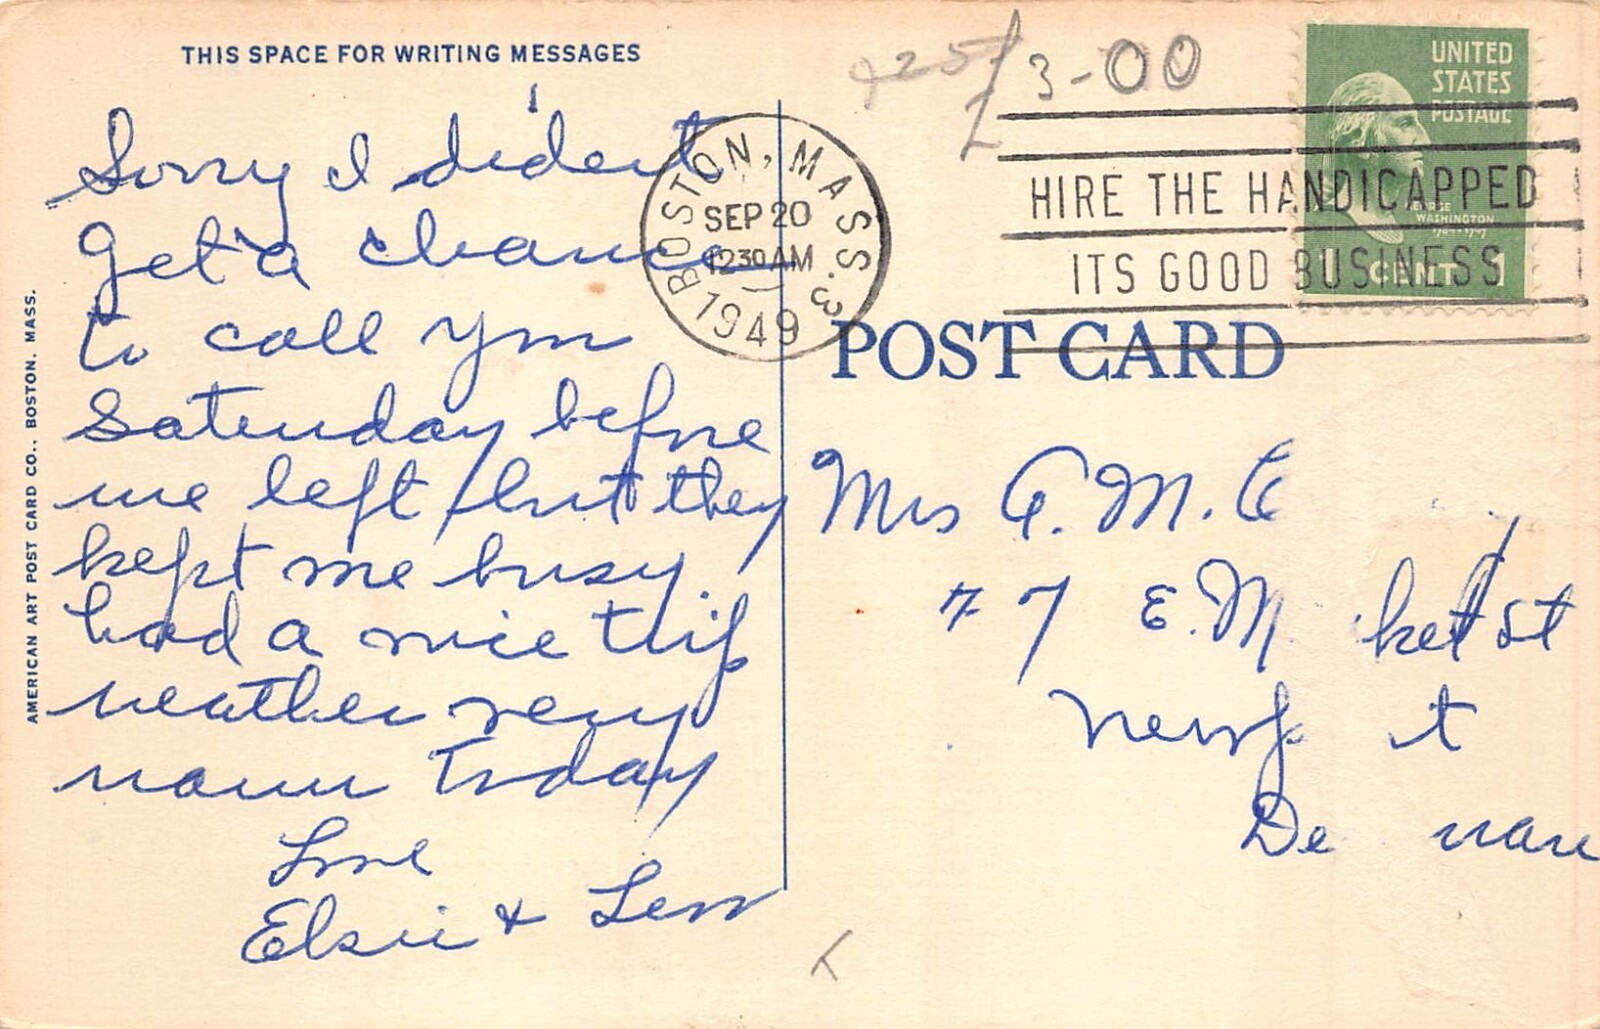 THIS SPACE FOR WRITING MESSAGES
Sorry I dident
get a chance
to call you
Saturday before
we left but they
kept me busy.
had a nice trip
weather very
warm today
Love
Elsie &
AMERICAN ART POST CARD CO., BOSTON, MASS.
3-00
BOSTON, MASS. 3
SEP 20
1230 AM
1949
HIRE THE HANDICAPPED
ITS GOOD BUSINESS
UNITED
STATES
POSTAGE
GEORGE
WASHINGTON
1 CENT 1
POST CARD
Mrs A. M. C
77 E. M ket St
Newp t
De ware